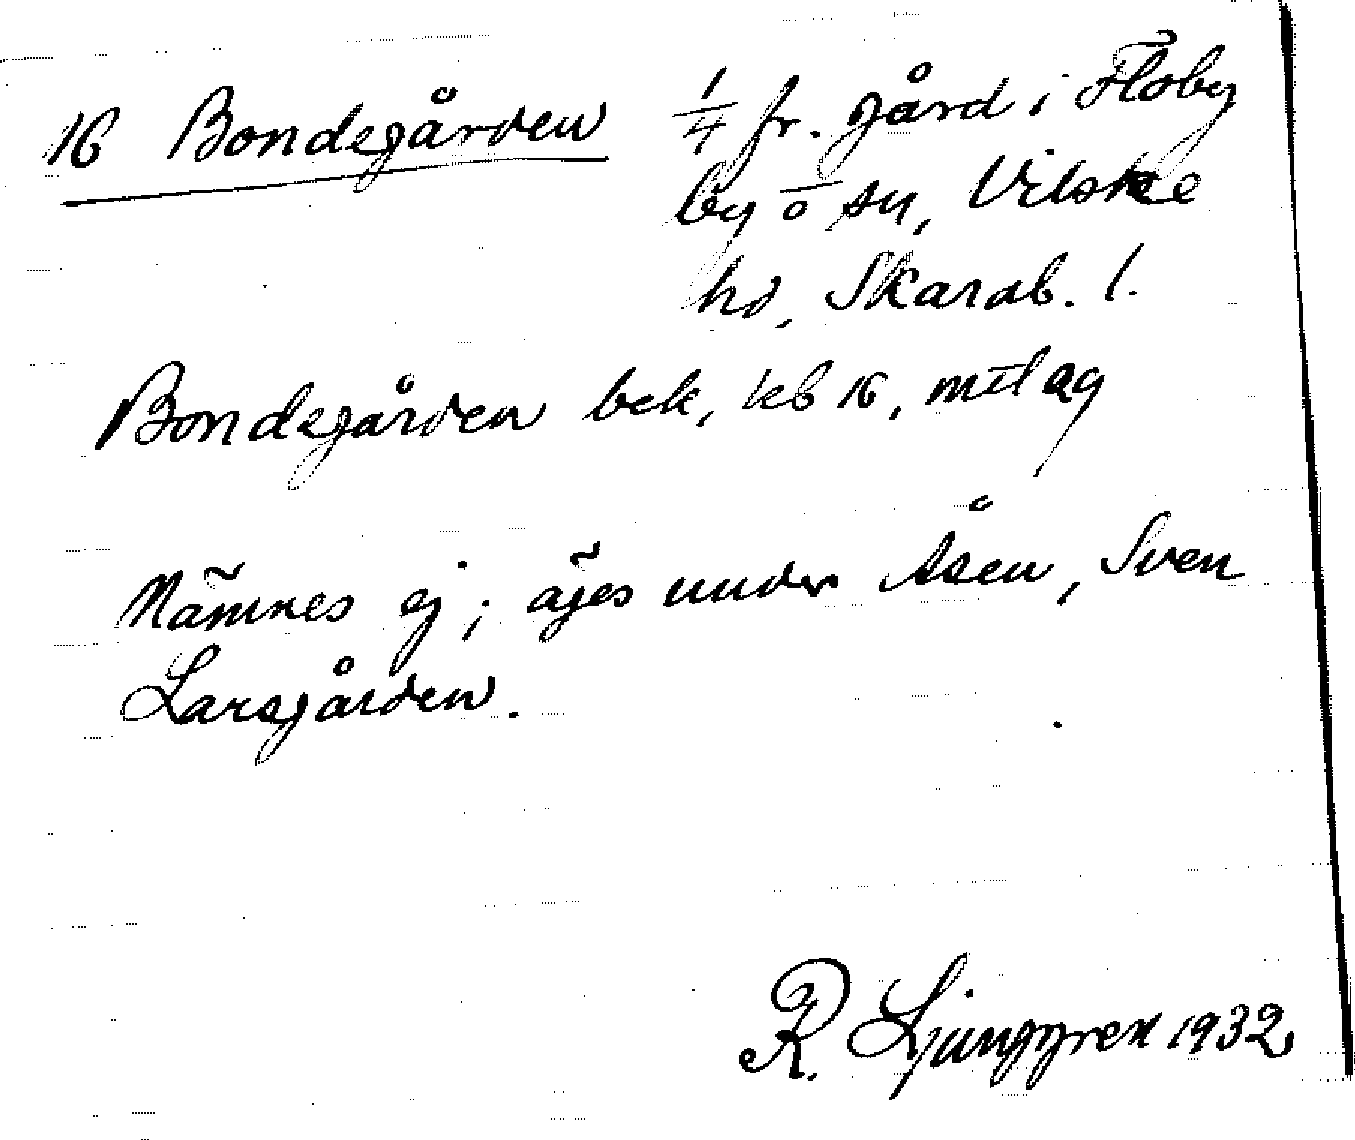 16 Bondegården 1/4 fr. gård i Floby
by o sn, Vilske
hd, Skarab. l.
Bondegården bek, kb 16,
Nämnes ej; äges under Åsen, Sven
Larsgården.
R. Ljunggren 1932